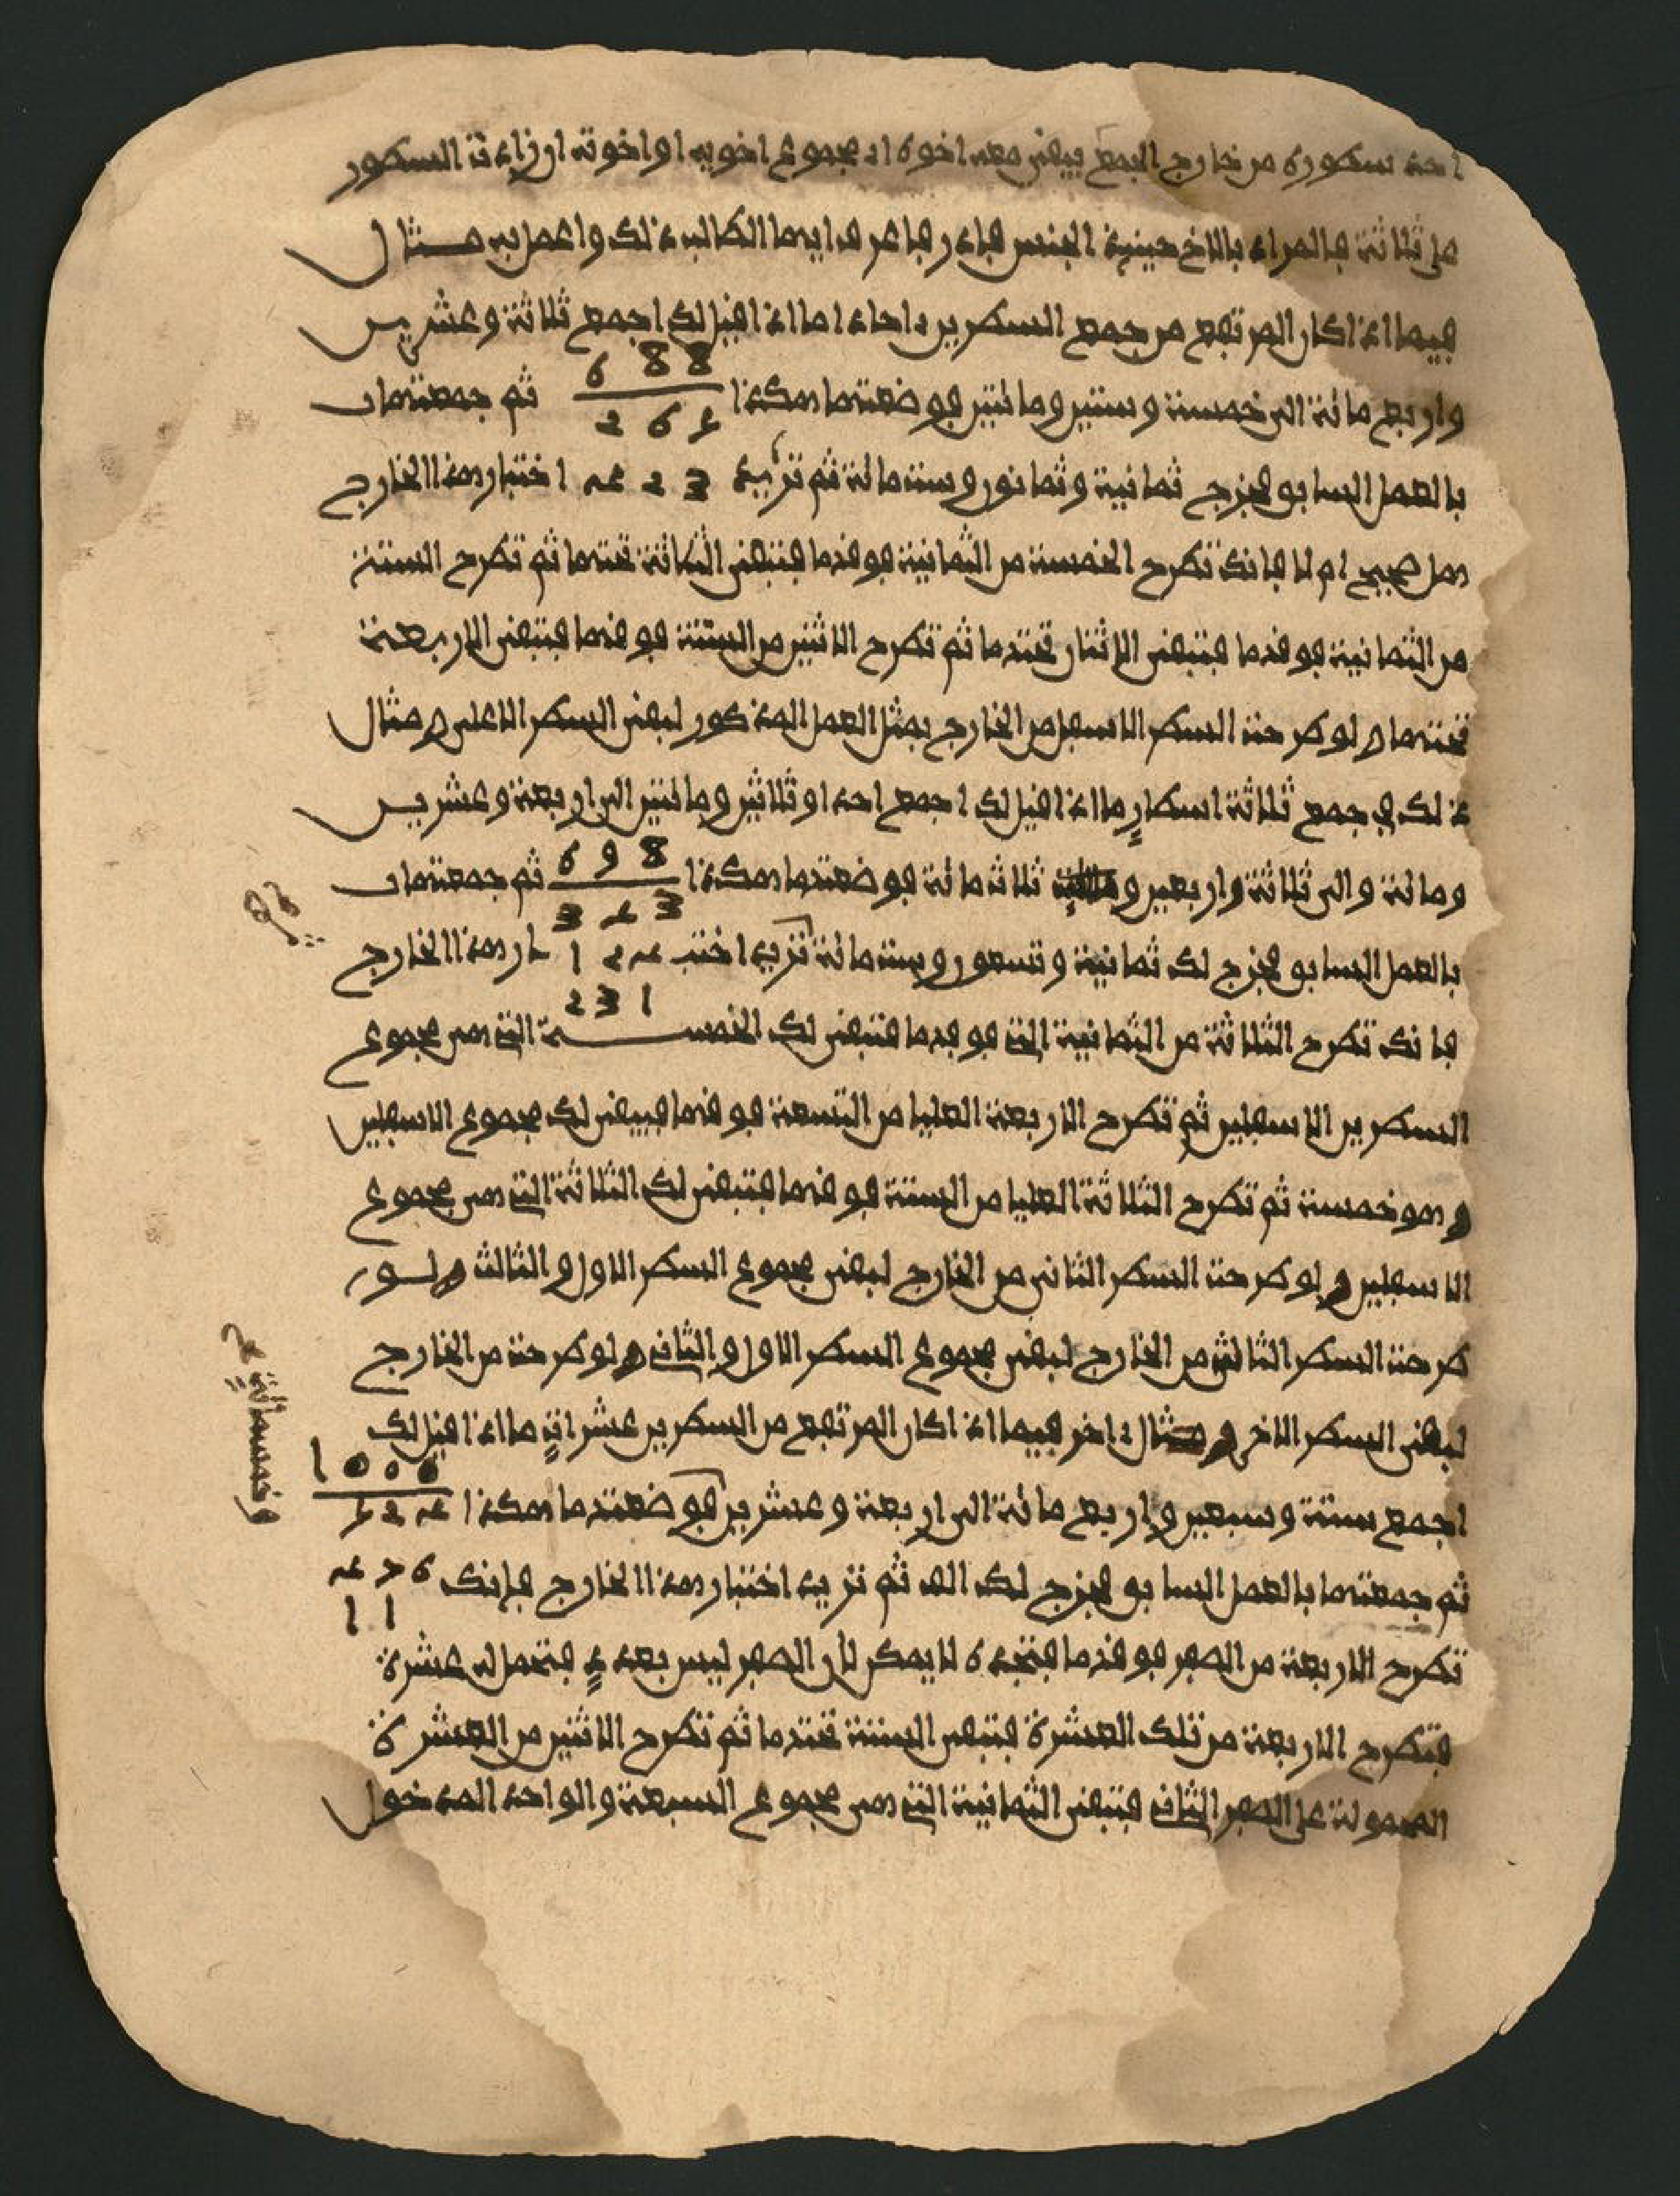 احد سطوره من خارج الجمع يبقى معه اخوه او مجموع اخويه او اخوته ان زادت السطور
على ثلاثة فالمراد بالاخ حينئذ الجنس فادر فاعرف ايها الطالب ذلك واعمل به مثال
فيما اذا كان المرتفع من جمع السطرين ءاحادا ما اذا قيل لك اجمع ثلاثة وعشرين
واربع مائة الى خمسة وستين ومائتين فوضعتهما هكذا 688 ثم جمعتهما
265
بالعمل السابق فخرج ثمانية وثمانون وستمائة ثم تريد 423 اختبار هذا الخارج
هل صحيح ام لا فانك تطرح الخمسة من الثمانية فوقها فتبقى الثلاثة تحتها ثم تطرح الستة
من الثمانية فوقها فتبقى الاثنان تحتها ثم تطرح الاثنين من الستة فوقها فتبقى الاربعة
تحتها ولو طرحت السطر الاسفل من الخارج بمثل العمل المذكور لبقى السطر الاعلى ومثال
ذلك في جمع ثلاثة اسطار ما اذا قيل لك اجمع احدا وثلاثين ومائتين الى اربعة وعشرين
ومائة والى ثلاثة واربعين و ثلاث مائة فوضعتهما هكذا 698 ثم جمعتهما
343
بالعمل السابق فخرج لك ثمانية وتسعون وستمائة تريد اختب 124 ار هذا الخارج
231
فانك تطرح الثلاثة من الثمانية التي فوقها فتبقى لك الخمسة التي هي مجموع
السطرين الاسفلين ثم تطرح الاربعة العليا من التسعة فوقها فيبقى لك مجموع الاسفلين
وهو خمسة ثم تطرح الثلاثة العليا من الستة فوقها فتبقى لك الثلاثة التي هي مجموع
الاسفلين ولو طرحت السطر الثاني من الخارج لبقى مجموع السطر الاول والثالث ولو
طرحت السطر الثالث من الخارج لبقى مجموع السطر الاول والثاني ولو طرحت من الخارج
لبقى السطر الاخر ومثال ءاخر فيما اذا كان المرتفع من السطرين عشرات ما اذا قيل لك
1000
اجمع ستة وسبعين واربع مائة الى اربعة وعشرين فوضعتهما هكذا 524
وخمسمائة
ثم جمعتهما بالعمل السابق فخرج لك الف ثم تريد اختبار هذا الخارج فانك 476
11
تطرح الاربعة من الصفر فوقها فتجده لا يمكن لان الصفر ليس بعدد فتحمل له عشرة
فتطرح الاربعة من تلك العشرة فتبقى الستة تحتها ثم تطرح الاثنين من العشرة
المحمولة على الصفر الثاني فتبقى الثمانية التي هي مجموع السبعة والواحد المدخول